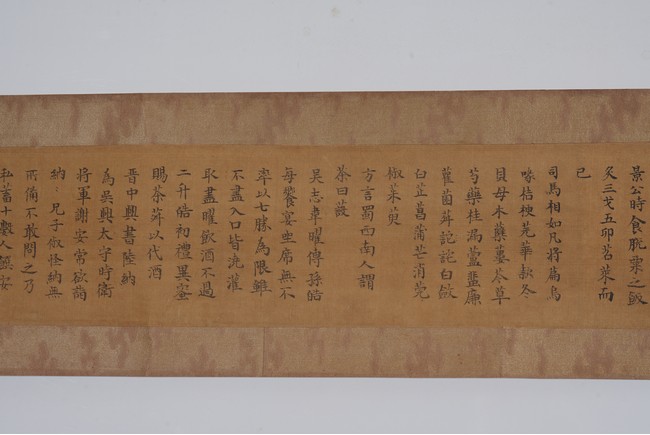 景公時食脫粟之飯
炙三戈五卯茗菜而
已
司馬相如凡將篇烏
喙桔梗芫華款冬
貝母木蘗蔞苓草
芍藥桂漏蘆蜚廉
雚菌荈詫詫白斂
白芷菖蒲芒消莞
椒茱萸
方言蜀西南人謂
茶曰蔎
吳志韋曜傳孫皓
每饗宴坐席無不
率以七勝為限雖
不盡入口皆澆灌
取盡曜飲酒不過
二升皓初禮異密
賜茶荈以代酒
晉中興書陸納
為吳興太守時衛
將軍謝安常欲詣
納〻兄子俶怪納無
所備不敢問之乃
私蓄十數人饌安